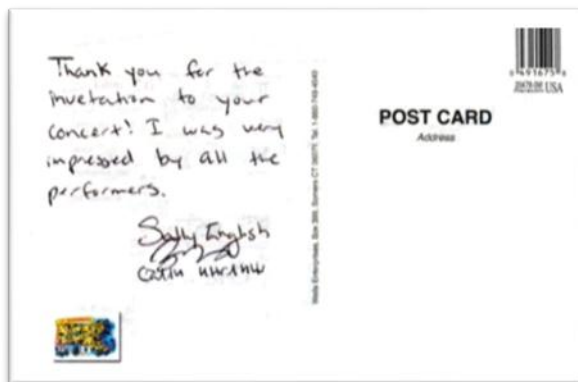 Thank you for the
invetation to your
concert! I was very
impressed by all the
performers.
Sally English
POST CARD
Address
USA